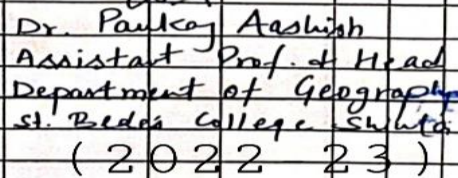 Dr. Pankaj Aashish
Assistant Prof. & Head
Department of Geography
St. Bede's College Shimla
(2022 23)